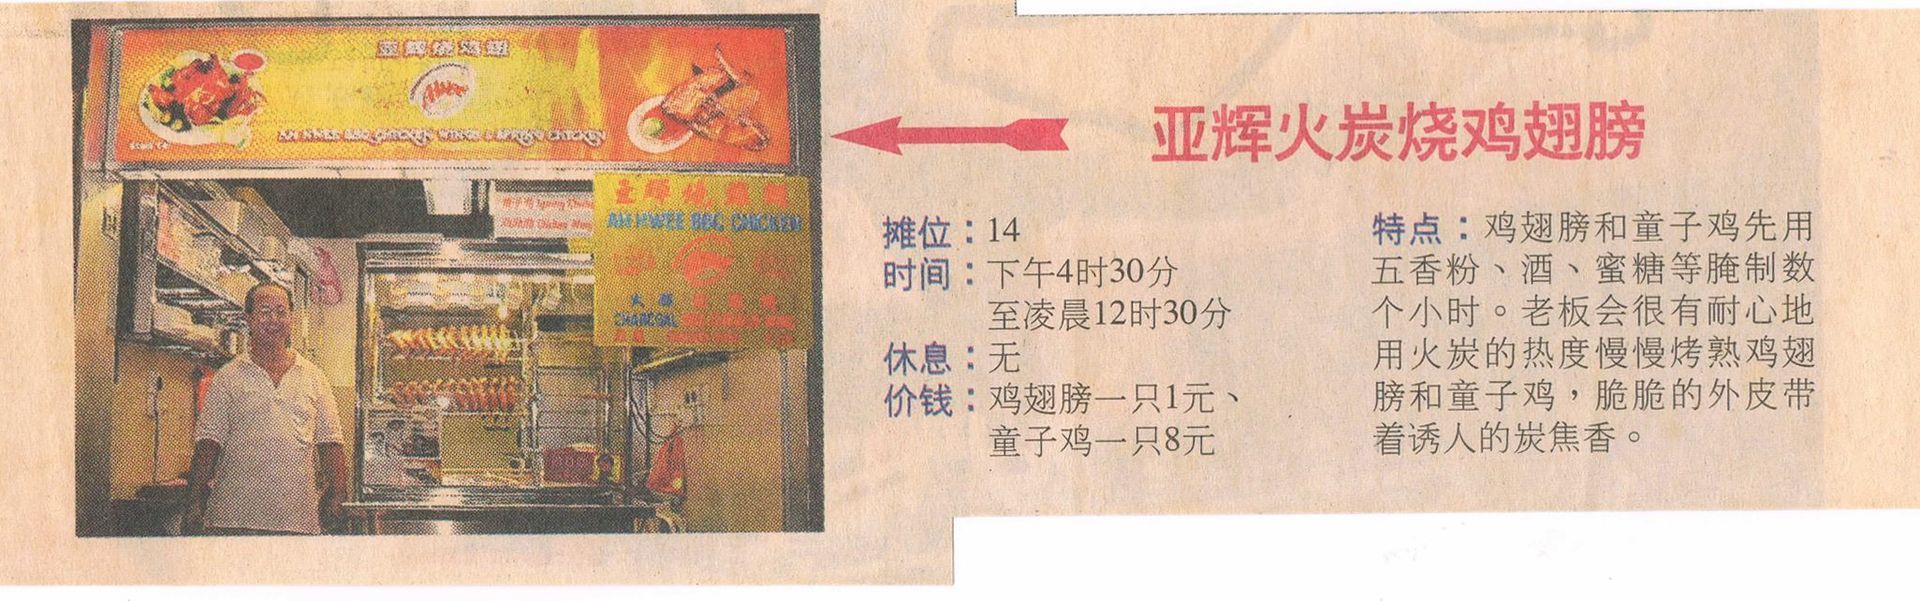 亚辉烧鸡翅
AH HWEE BBQ CHICKEN WINGS & SPRING CHICKEN
AH HWEE BBQ CHICKEN
CHARCOAL
亚辉火炭烧鸡翅膀
摊位：14
时间：下午4时30分
至凌晨12时30分
休息：无
价钱：鸡翅膀一只1元、
童子鸡一只8元
特点：鸡翅膀和童子鸡先用
五香粉、酒、蜜糖等腌制数
个小时。老板会很有耐心地
用火炭的热度慢慢烤熟鸡翅
膀和童子鸡，脆脆的外皮带
着诱人的炭焦香。